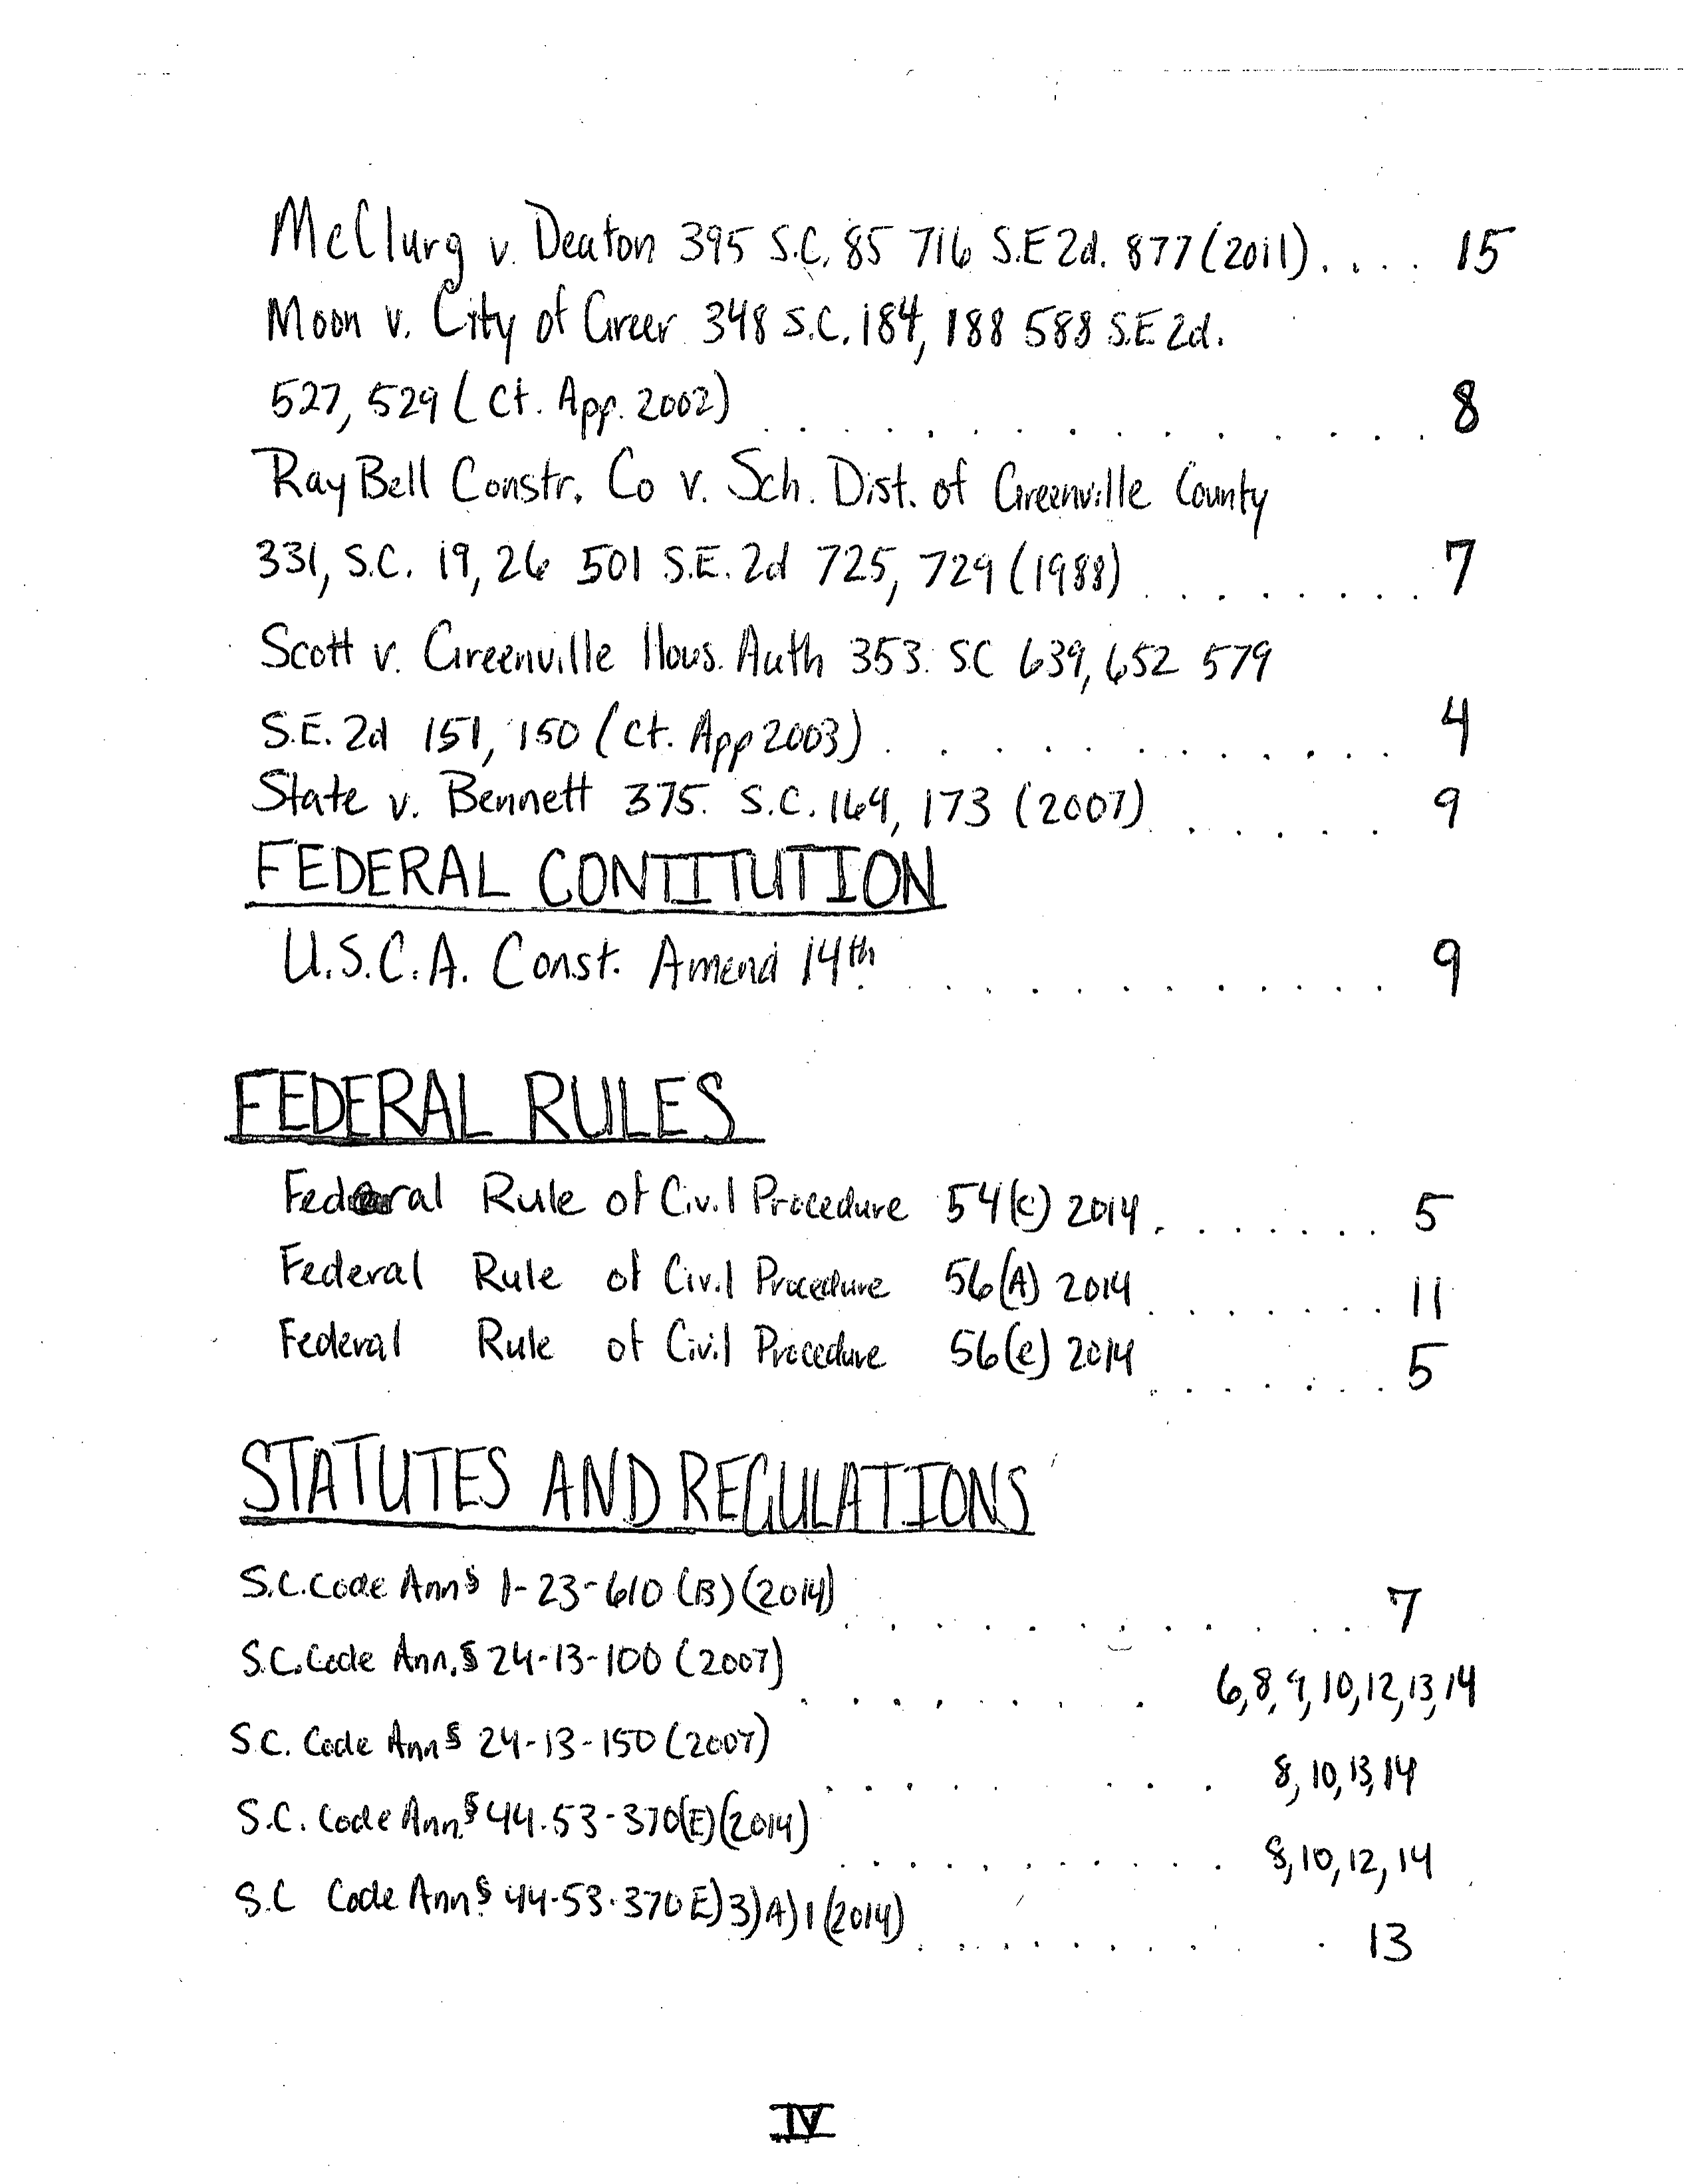 McClurg v. Deaton 395 S.C. 85 716 S.E 2d. 877 (2011) .... 15
Moon v. City of Greer 348 S.C. 184, 188 588 S.E 2d.
527, 529 (Ct. App. 2002) .............. 8
Ray Bell Constr. Co v. Sch. Dist. of Greenville County
331, S.C. 19, 26 501 S.E. 2d 725, 729 (1988) ........ 7
Scott v. Greenville Hous. Auth 353. SC 639, 652 579
S.E. 2d 151, 150 (Ct. App 2003) ............ 4
State v. Bennett 375. S.C. 169, 173 (2007) ...... 9
FEDERAL CONTITUTION
U.S.C.A. Const. Amend 14th ............ 9
FEDERAL RULES
Federal Rule of Civil Procedure 54(c) 2014 ....... 5
Federal Rule of Civil Procedure 56(A) 2014 ....... 11
Federal Rule of Civil Procedure 56(e) 2014 ....... 5
STATUTES AND REGULATIONS
S.C. Code Ann § 1-23-610 (B) (2014) ............. 7
S.C. Code Ann. § 24-13-100 (2007) ........ 6,8,9,10,12,13,14
S.C. Code Ann § 24-13-150 (2007) ......... 8,10,13,14
S.C. Code Ann. § 44.53-370(E)(2014) ........... 8,10,12,14
S.C Code Ann. § 44-53-370 E)3)A)1 (2014) .......... 13
IV